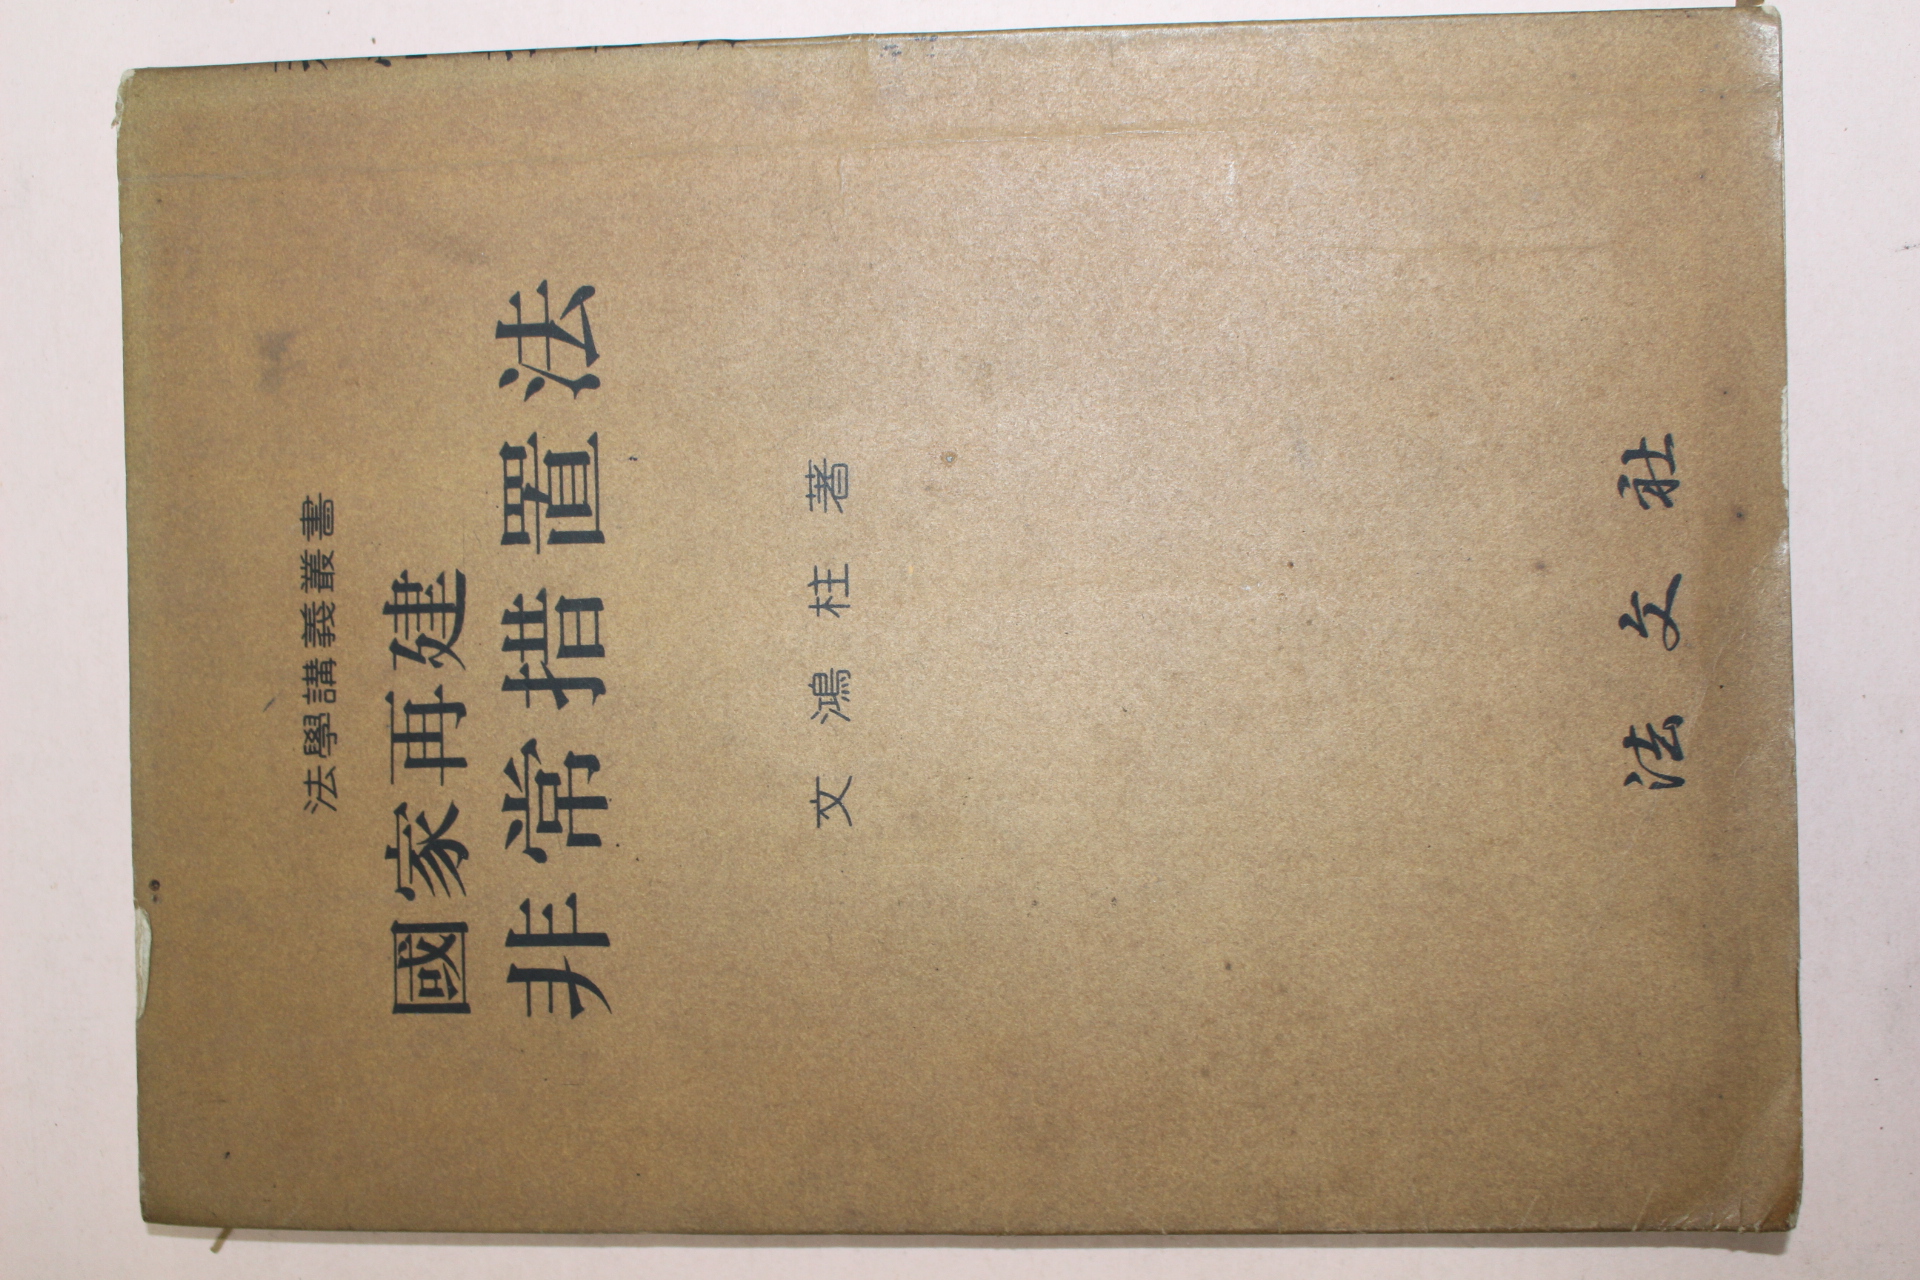 法學講義叢書
國家再建
非常措置法
文鴻柱著
法文社